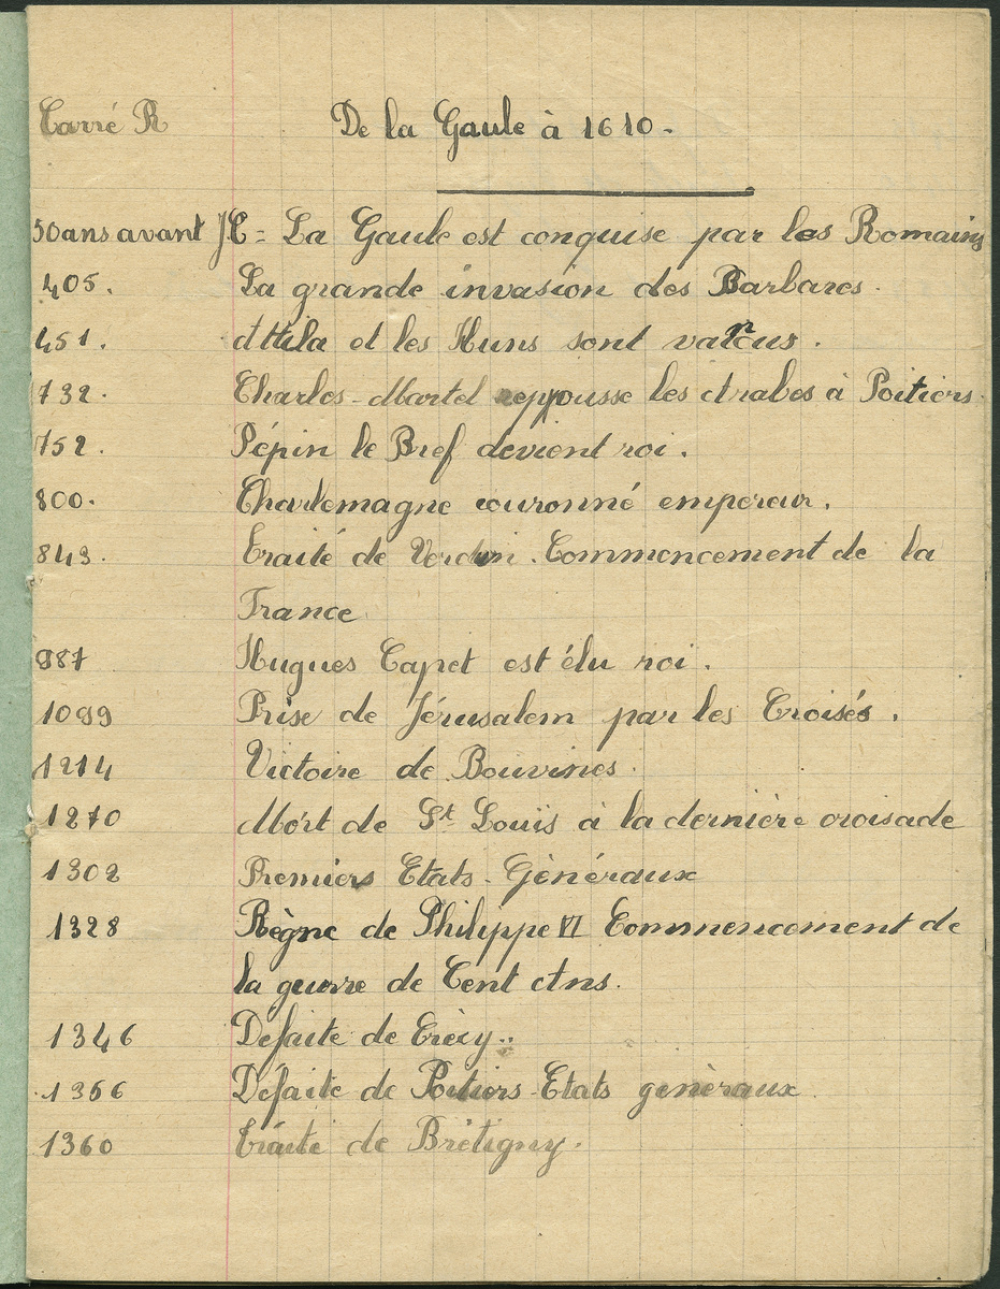 Carré R
De la Gaule à 1610.
50 ans avant JC = La Gaule est conquise par les Romains
405. La grande invasion des Barbares.
451. Attila et les Huns sont vaincus.
732. Charles-Martel reppousse les Arabes à Poitiers.
752. Pépin le Bref devient roi.
800. Charlemagne couronné empereur.
843. Traité de Verdun. Commencement de la
France
987 Hugues Capet est élu roi.
1099 Prise de Jérusalem par les Croisés.
1214 Victoire de Bouvines.
1270 Mort de St Louïs à la dernière croisade
1302 Premiers Etats-Généraux
1328 Règne de Philippe VI Commencement de
la guerre de Cent Ans.
1346 Defaite de Crécy..
1356 Défaite de Poitiers Etats genèraux
1360 Traité de Brétigny.